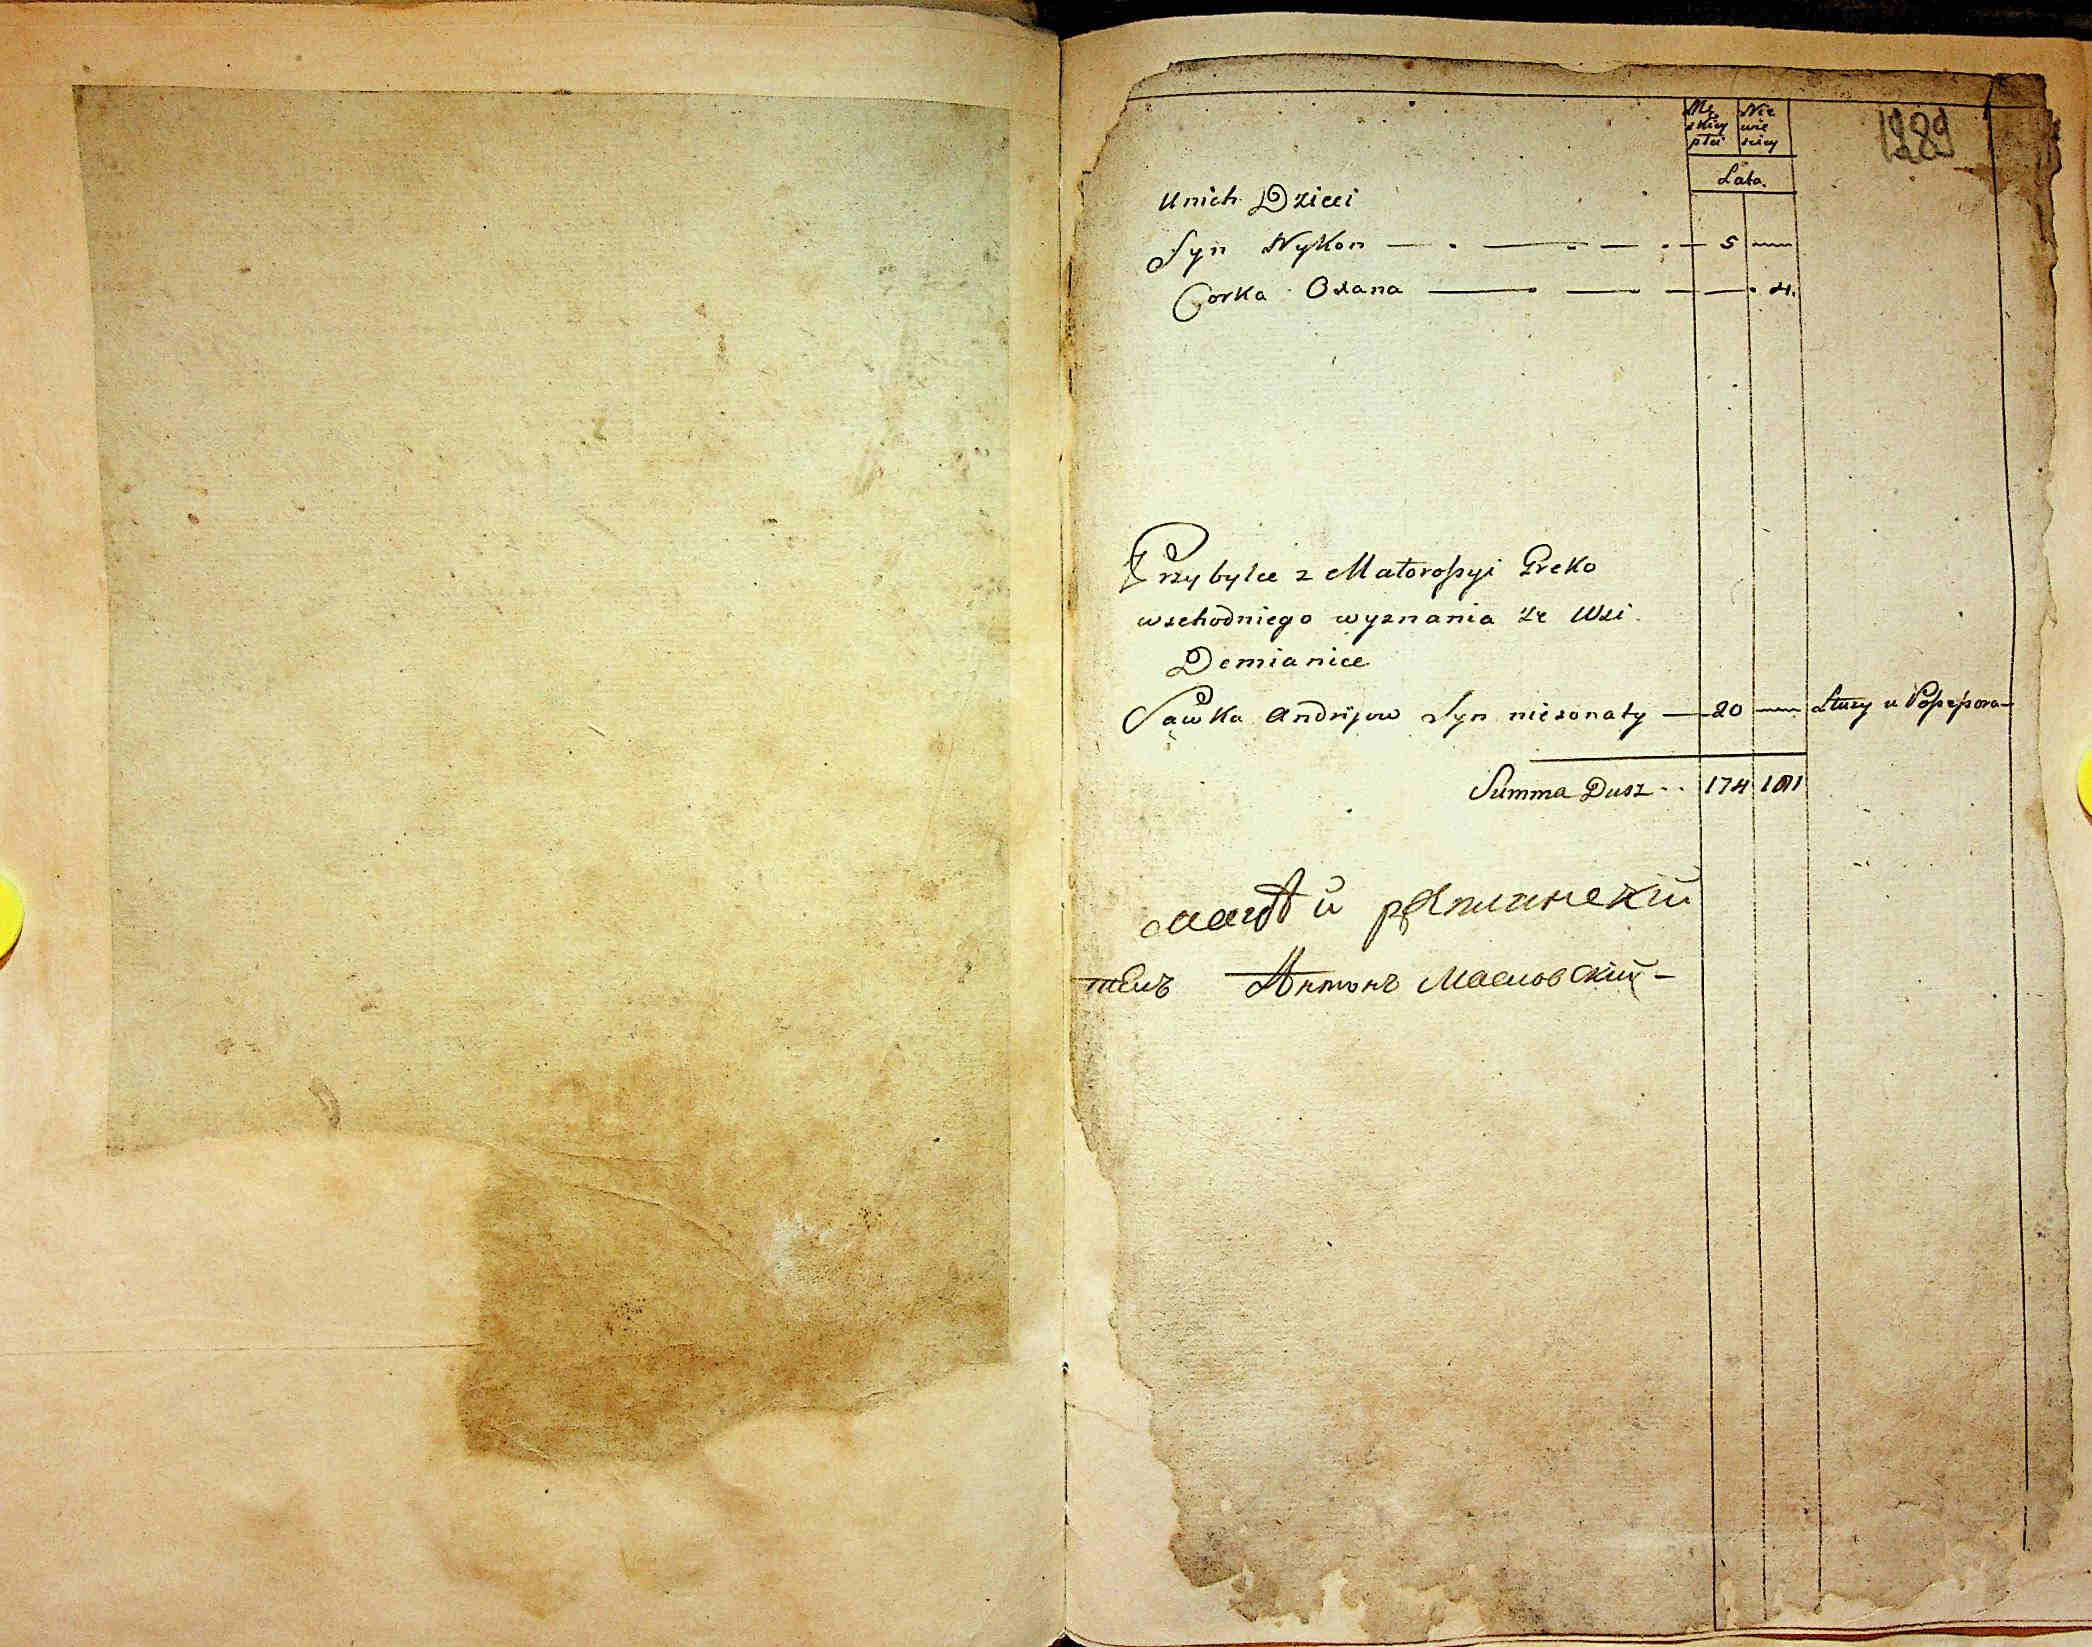 Mę Nie
skiey wie
płci sciey
1289
Lata.
u nich Dzieci
Syn Nykon — 5 —
Corka Oxana — 4.
Przybylce z Małorossyi Greko
wschodniego wyznania ze Wsi
Demianice
Sawka Andrijow Syn nieżonaty — 20 — Służy u Possessora
Summa Dusz .. 174 181
Антонъ Масловский